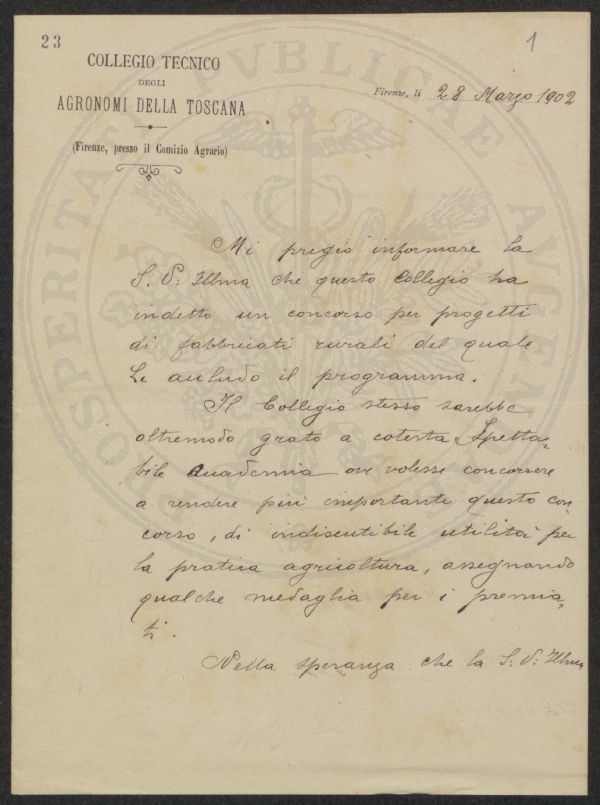 23
1
COLLEGIO TECNICO
DEGLI
AGRONOMI DELLA TOSCANA
(Firenze, presso il Comizio Agrario)
Firenze, li 28 Marzo 1902
Mi pregio informare la
S. V. Illma che questo Collegio ha
indetto un concorso per progetti
di fabbricati rurali del quale
Le accludo il programma.
Il Collegio stesso sarebbe
oltremodo grato a cotesta Spetta-
bile Accademia ove volesse concorrere
a rendere più importante questo con
corso, di indiscutibile utilità per
la pratica agricoltura, assegnando
qualche medaglia per i premia-
ti.
Nella speranza che la S. V. Illma
PROSPERITATI PVBLICAE AVGENDAE